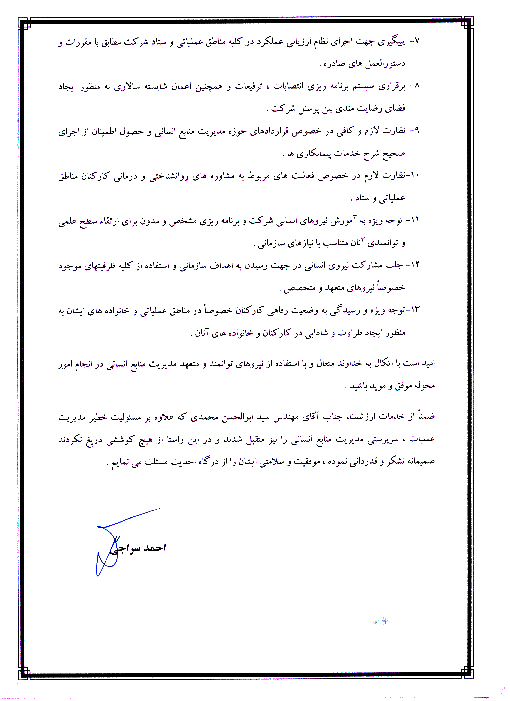 ۷- پیگیری جهت اجرای نظام ارزیابی عملکرد در کلیه مناطق عملیاتی و ستاد شرکت مطابق با مقررات و
دستورالعمل های صادره .
۸- برقراری سیستم برنامه ریزی انتصابات ، ترفیعات و همچنین اعمال شایسته سالاری به منظور ایجاد
فضای رضایت مندی بین پرسنل شرکت .
۹- نظارت لازم و کافی در خصوص قراردادهای حوزه مدیریت منابع انسانی و حصول اطمینان از اجرای
صحیح شرح خدمات پیمانکاری ها .
۱۰-نظارت لازم در خصوص فعالیت های مربوط به مشاوره های روانشناختی و درمانی کارکنان مناطق
عملیاتی و ستاد .
۱۱- توجه ویژه به آموزش نیروهای انسانی شرکت و برنامه ریزی مشخص و مدون برای ارتقاء سطح علمی
و توانمندی آنان متناسب با نیازهای سازمانی .
۱۲- جلب مشارکت نیروی انسانی در جهت رسیدن به اهداف سازمانی و استفاده از کلیه ظرفیتهای موجود
خصوصاً نیروهای متعهد و متخصص .
۱۳-توجه ویژه و رسیدگی به وضعیت رفاهی کارکنان خصوصاً در مناطق عملیاتی و خانواده های ایشان به
منظور ایجاد طراوت و شادابی در کارکنان و خانواده های آنان .
امید است با اتکال به خداوند متعال و با استفاده از نیروهای توانمند و متعهد مدیریت منابع انسانی در انجام امور
محوله موفق و موید باشید .
ضمناً از خدمات ارزشمند جناب آقای مهندس سید ابوالحسن محمدی که علاوه بر مسئولیت خطیر مدیریت
عملیات ، سرپرستی مدیریت منابع انسانی را نیز متقبل شدند و در این راستا از هیچ کوششی دریغ نکردند
صمیمانه تشکر و قدردانی نموده ، موفقیت و سلامتی ایشان را از درگاه احدیت مسئلت می نمایم .
احمد سراجی